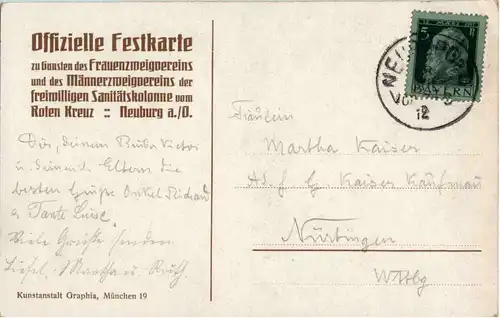 Offizielle Festkarte
zu Gunsten des Frauenzweigvereins
und des Männerzweigvereins der
freiwilligen Sanitätskolonne vom
Roten Kreuz :: Neuburg a./D.
Dir, deinem Bruder Victor
und deinen Eltern die
besten Grüße Onkel Richard
u Tante Luise.
Viele Grüße senden
Liesel, Martha u. Ruth.
Kunstanstalt Graphia, München 19
12
BAYERN
5
Fräulein
Martha Kaiser
Kaiser Kaufmann
Nürtingen
Wttbg